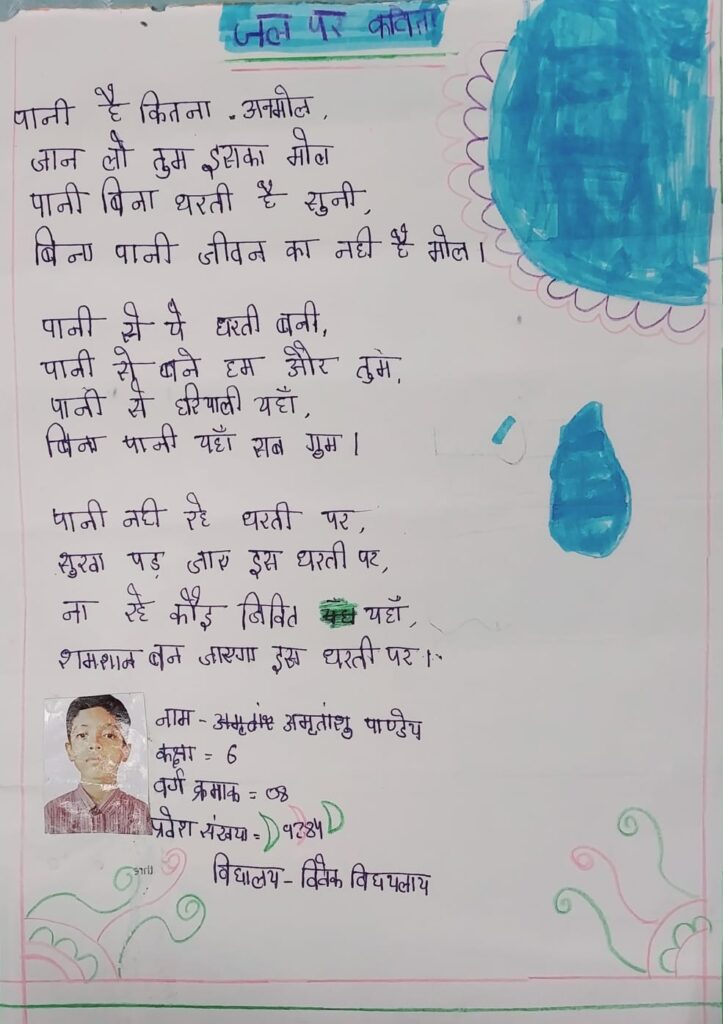 जल पर कविता
पानी है कितना अनमोल,
जान लो तुम इसका मोल
पानी बिना धरती है सुनी,
बिना पानी जीवन का नही है मोल।
पानी से ये धरती बनी,
पानी से बने हम और तुम,
पानी से हरियाली यहाँ,
बिना पानी यहाँ सब गुम।
पानी नही रहे धरती पर,
सुखा पड़ जाए इस धरती पर,
ना रहे कोई जिवित यहाँ,
शमशान बन जाएगा इस धरती पर।
नाम - अमृतांशु पाण्डेय
कक्षा = 6
वर्ग क्रमाक = 08
प्रवेश संख्या =
विद्यालय - विवेक विद्यालाय